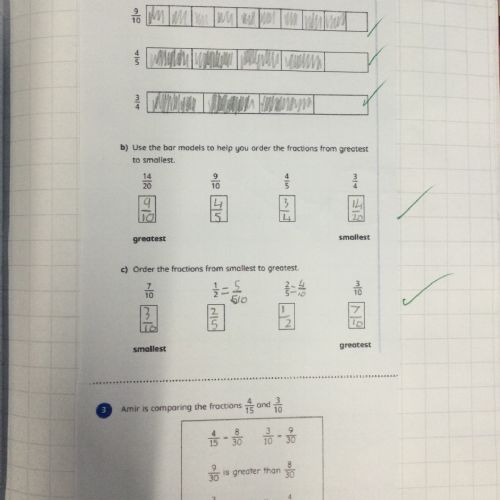 9/10
4/5
3/4
b) Use the bar models to help you order the fractions from greatest
to smallest.
14/20 9/10 4/5 3/4
9/10 4/5 3/4 14/20
greatest smallest
c) Order the fractions from smallest to greatest.
7/10 1/2 = 5/10 2/5 = 4/10 3/10
3/10 2/5 1/2 7/10
smallest greatest
3 Amir is comparing the fractions 4/15 and 3/10
4/15 = 8/30 3/10 = 9/30
9/30 is greater than 8/30